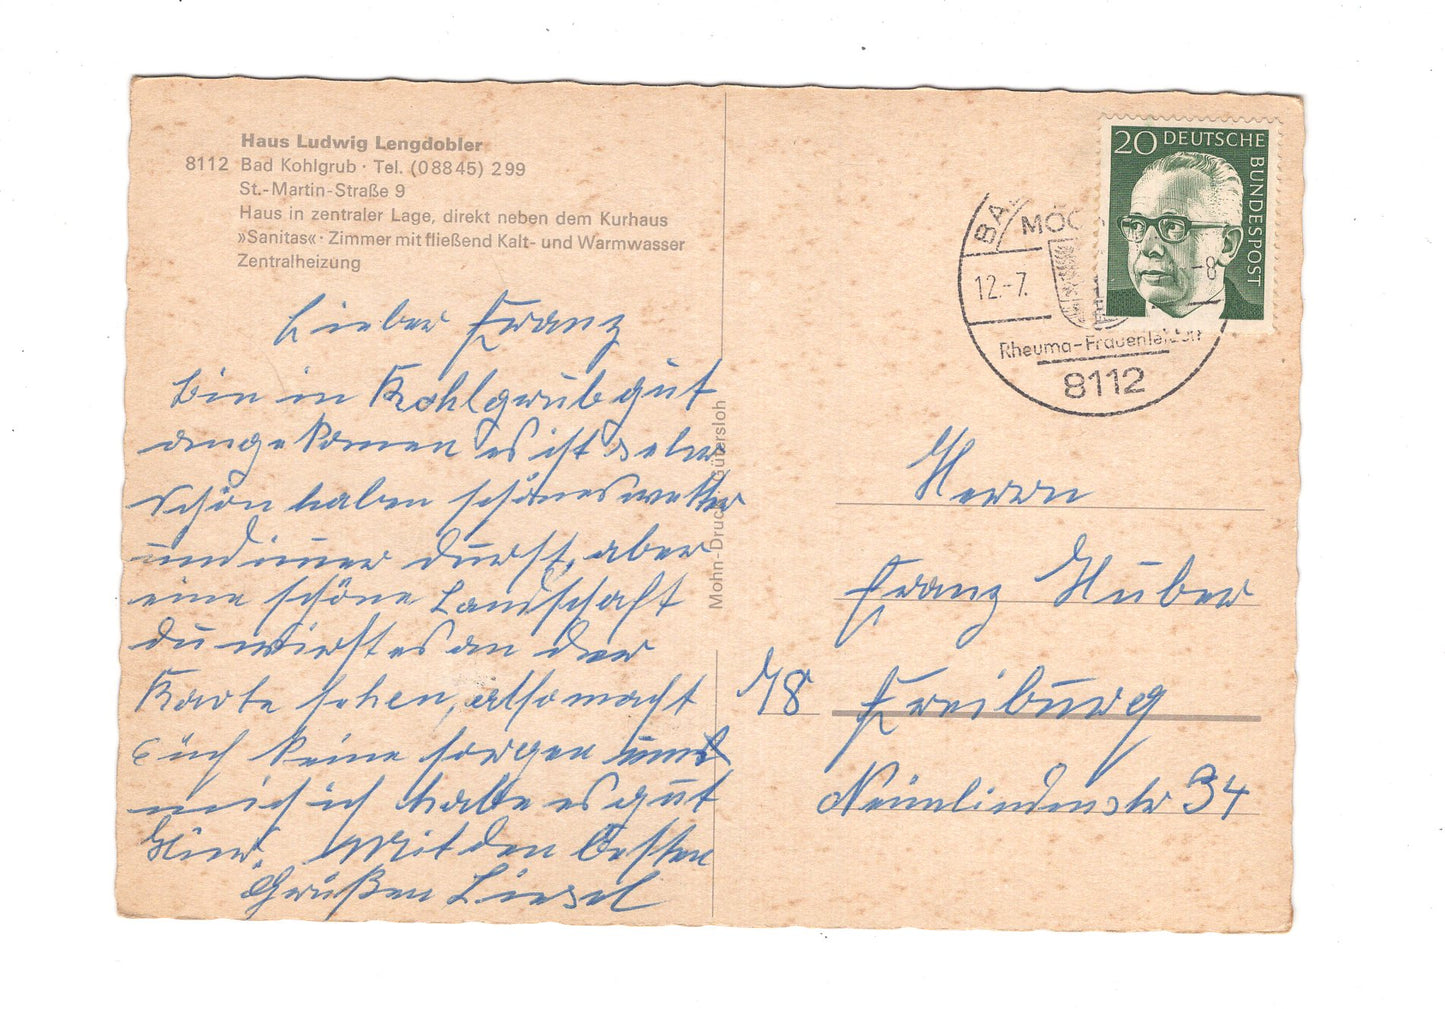 Haus Ludwig Lengdobler
8112 Bad Kohlgrub · Tel. (08845) 299
St.-Martin-Straße 9
Haus in zentraler Lage, direkt neben dem Kurhaus
»Sanitas« · Zimmer mit fließend Kalt- und Warmwasser
Zentralheizung
Lieber Franz
bin in Kohlgrub gut
angekomen es ist sehr
schön haben schönes wetter
und imer durst, aber
eine schöne Landschaft
du wirst es an der
Karte sehen, also macht
Euch keine sorgen um
mich ich habe es gut
hier. Mit den besten
Grüßen Liesel
Mohn-Druck Gütersloh
20 DEUTSCHE
BUNDESPOST
BA
MOO
12.-7.
-8
Rheuma-Frauenleiden
8112
Herrn
Franz Huber
78 Freiburg
Neunlindenstr 34